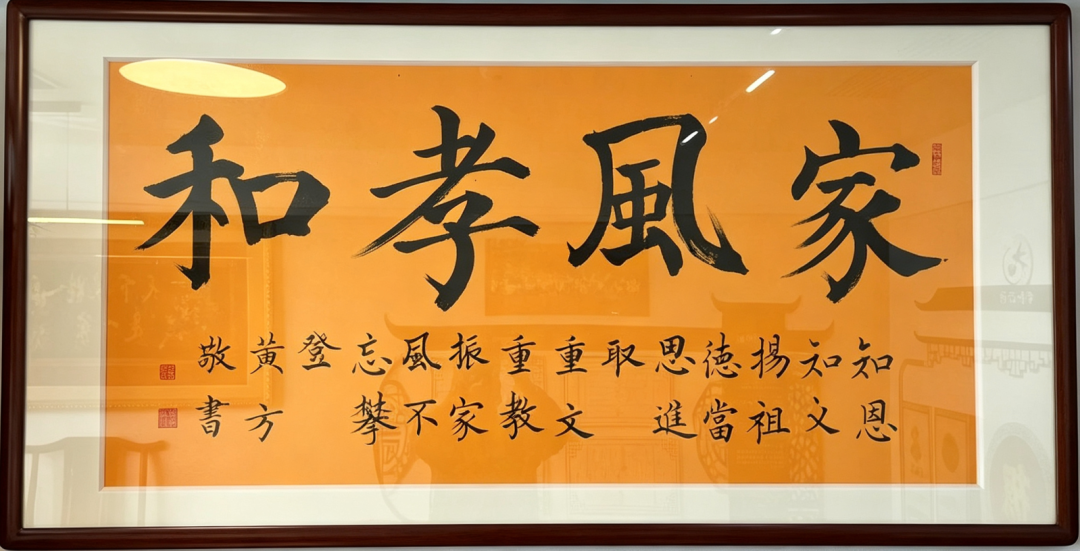 家風孝和
知恩
知文
揚祖
徳當
思進
取
重文
重教
振家
風不
忘攀
登
黃方
敬書